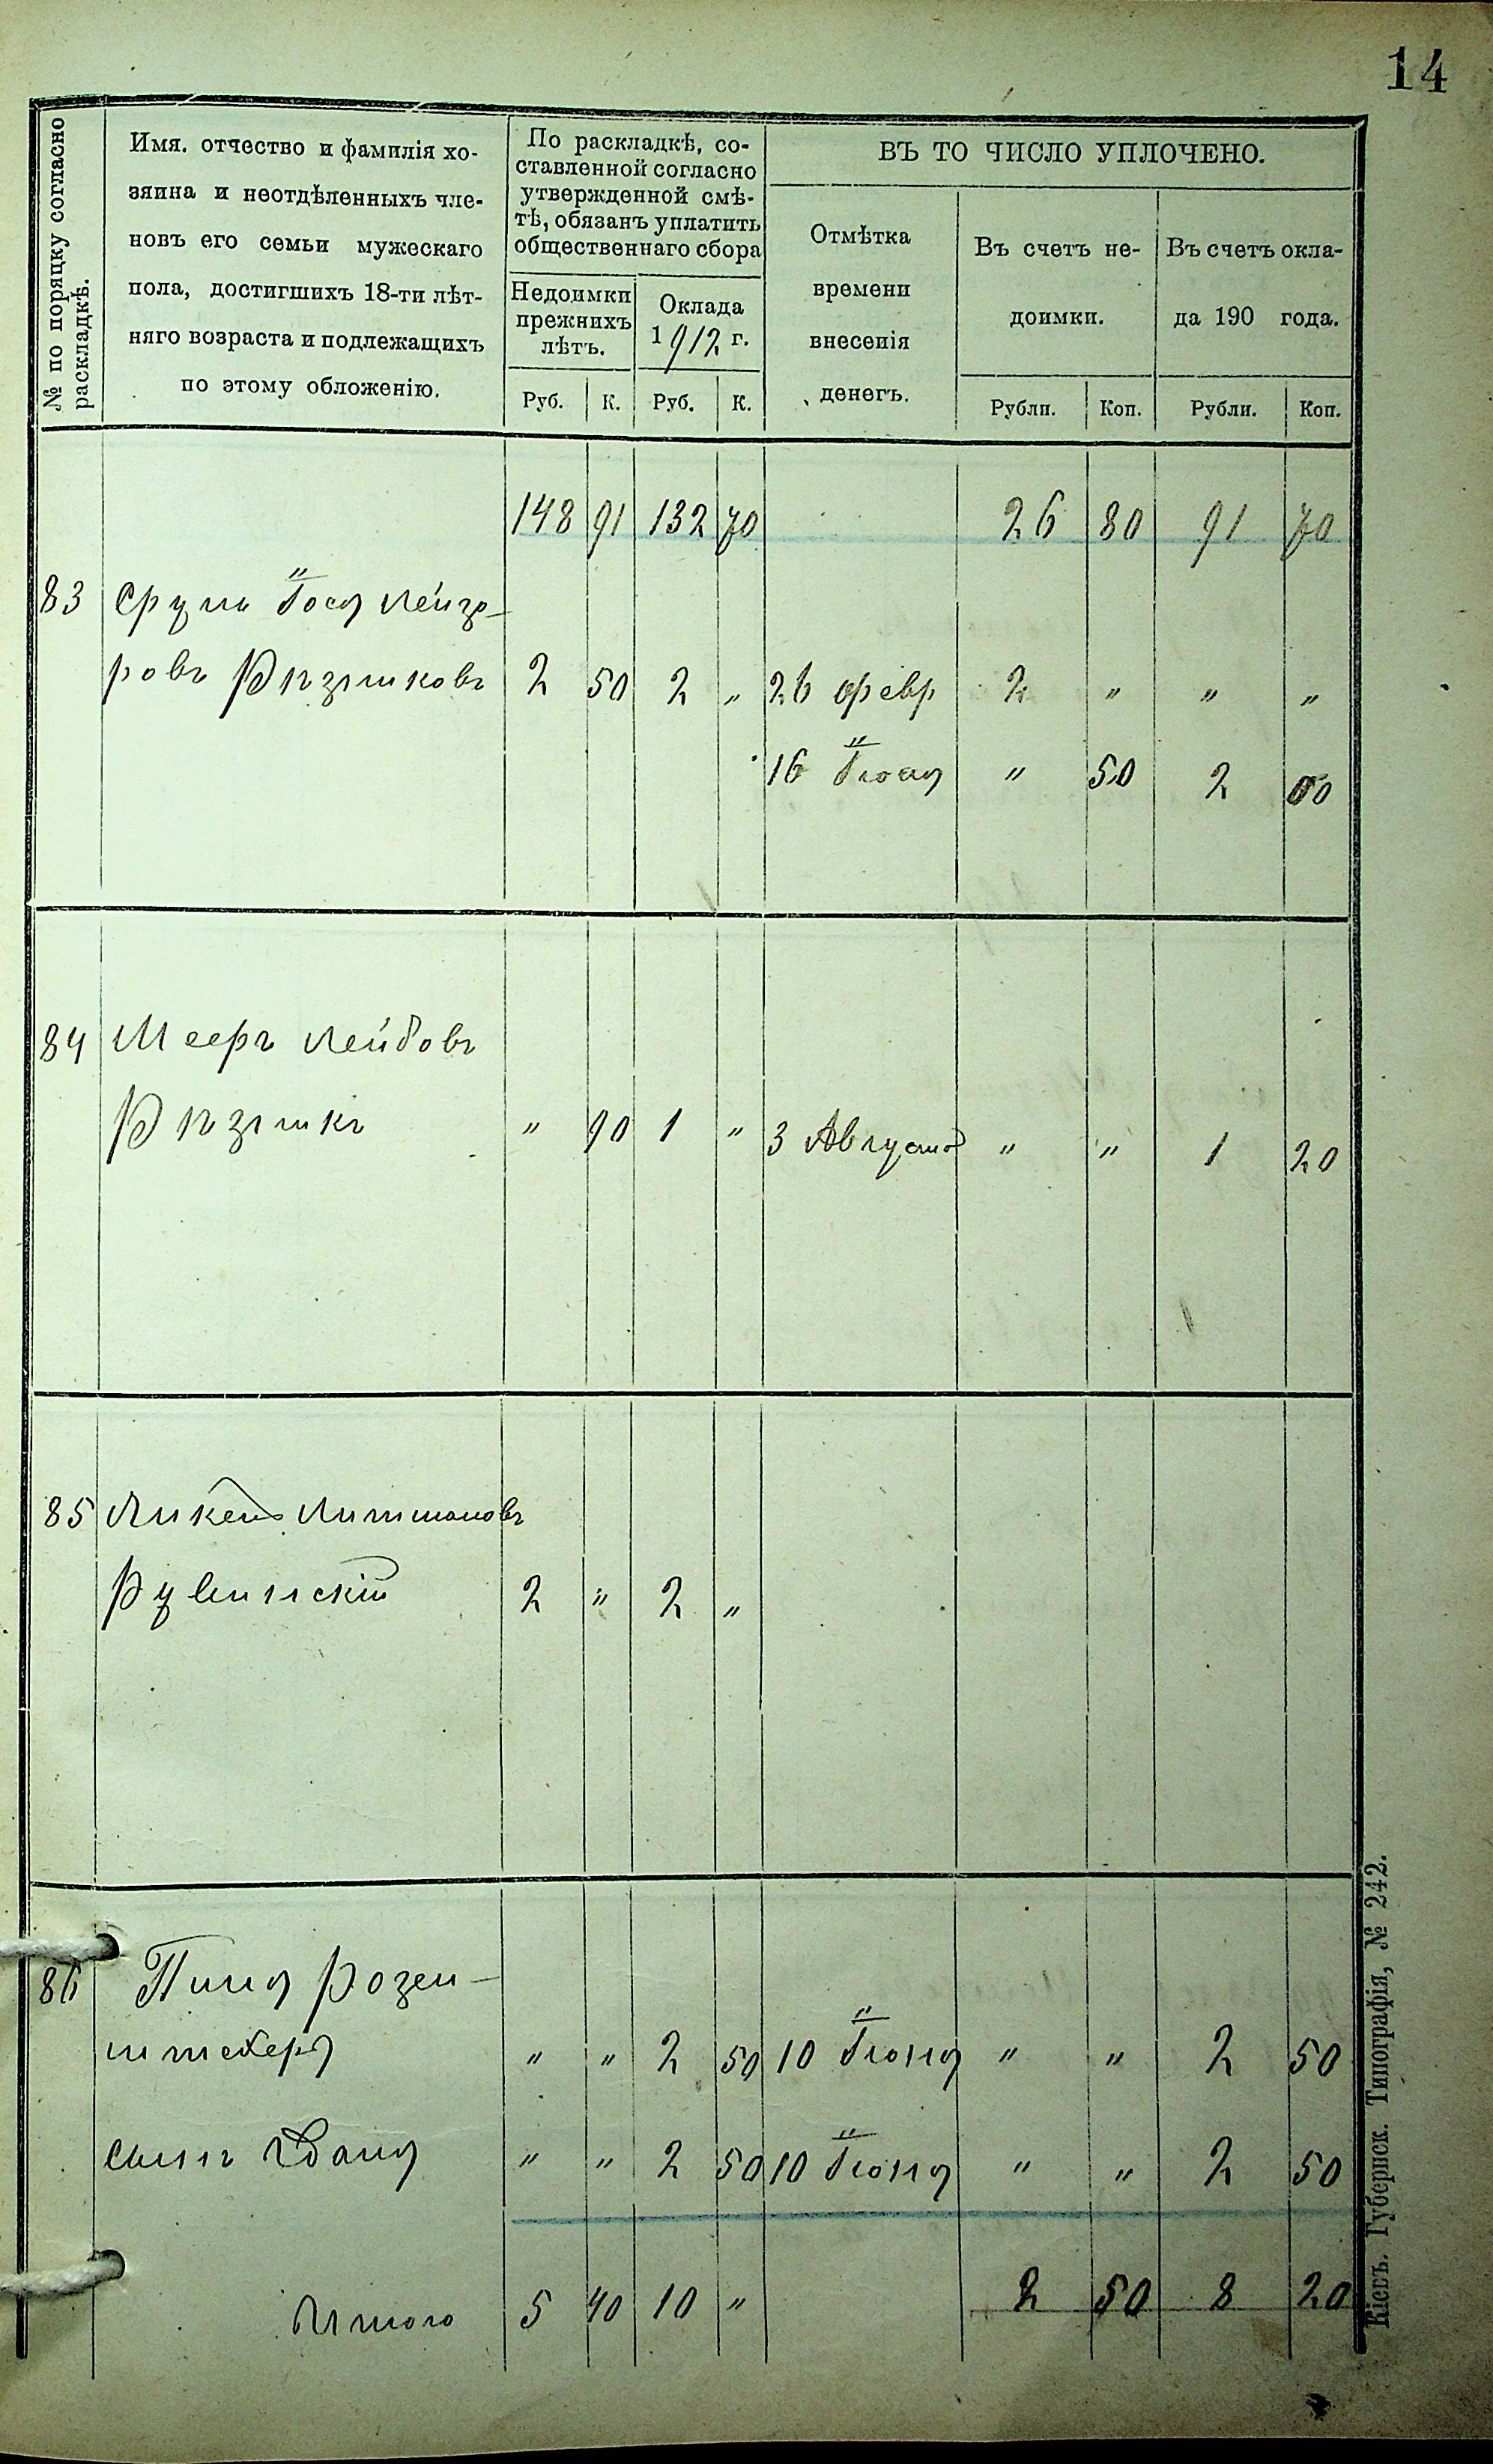 14
№ по порядку согласно
раскладкѣ.
Имя. отчество и фамилія хо-
зяина и неотдѣленныхъ чле-
новъ его семьи мужескаго
пола, достигшихъ 18-ти лѣт-
няго возраста и подлежащихъ
по этому обложенію.
По раскладкѣ, со-
ставленной согласно
утвержденной смѣ-
тѣ, обязанъ уплатить
общественнаго сбора
Недоимки
прежнихъ
лѣтъ.
Оклада
1912 г.
Руб. К. Руб. К.
ВЪ ТО ЧИСЛО УПЛОЧЕНО.
Отмѣтка
времени
внесенія
денегъ.
Въ счетъ не-
доимки.
Въ счетъ окла-
да 190 года.
Рубли. Коп. Рубли. Коп.
148 91 132 70 26 80 91 70
83 Сруль Іося Лейзо-
ровъ 2 50 2 „ 26 февр 2 „ „ „
16 Іюня „ 50 2 00
84 Мееръ Лейбовъ
„ 90 1 „ 3 Августа „ „ 1 20
85 Литмановъ
Рувинскій 2 „ 2 „
86 Пиня Розен-
штехеръ „ „ 2 50 10 Іюня „ „ 2 50
сынъ „ „ 2 50 10 Іюня „ „ 2 50
Итого 5 40 10 „ 2 50 8 20
Кіевъ. Губернск. Типографія, № 242.